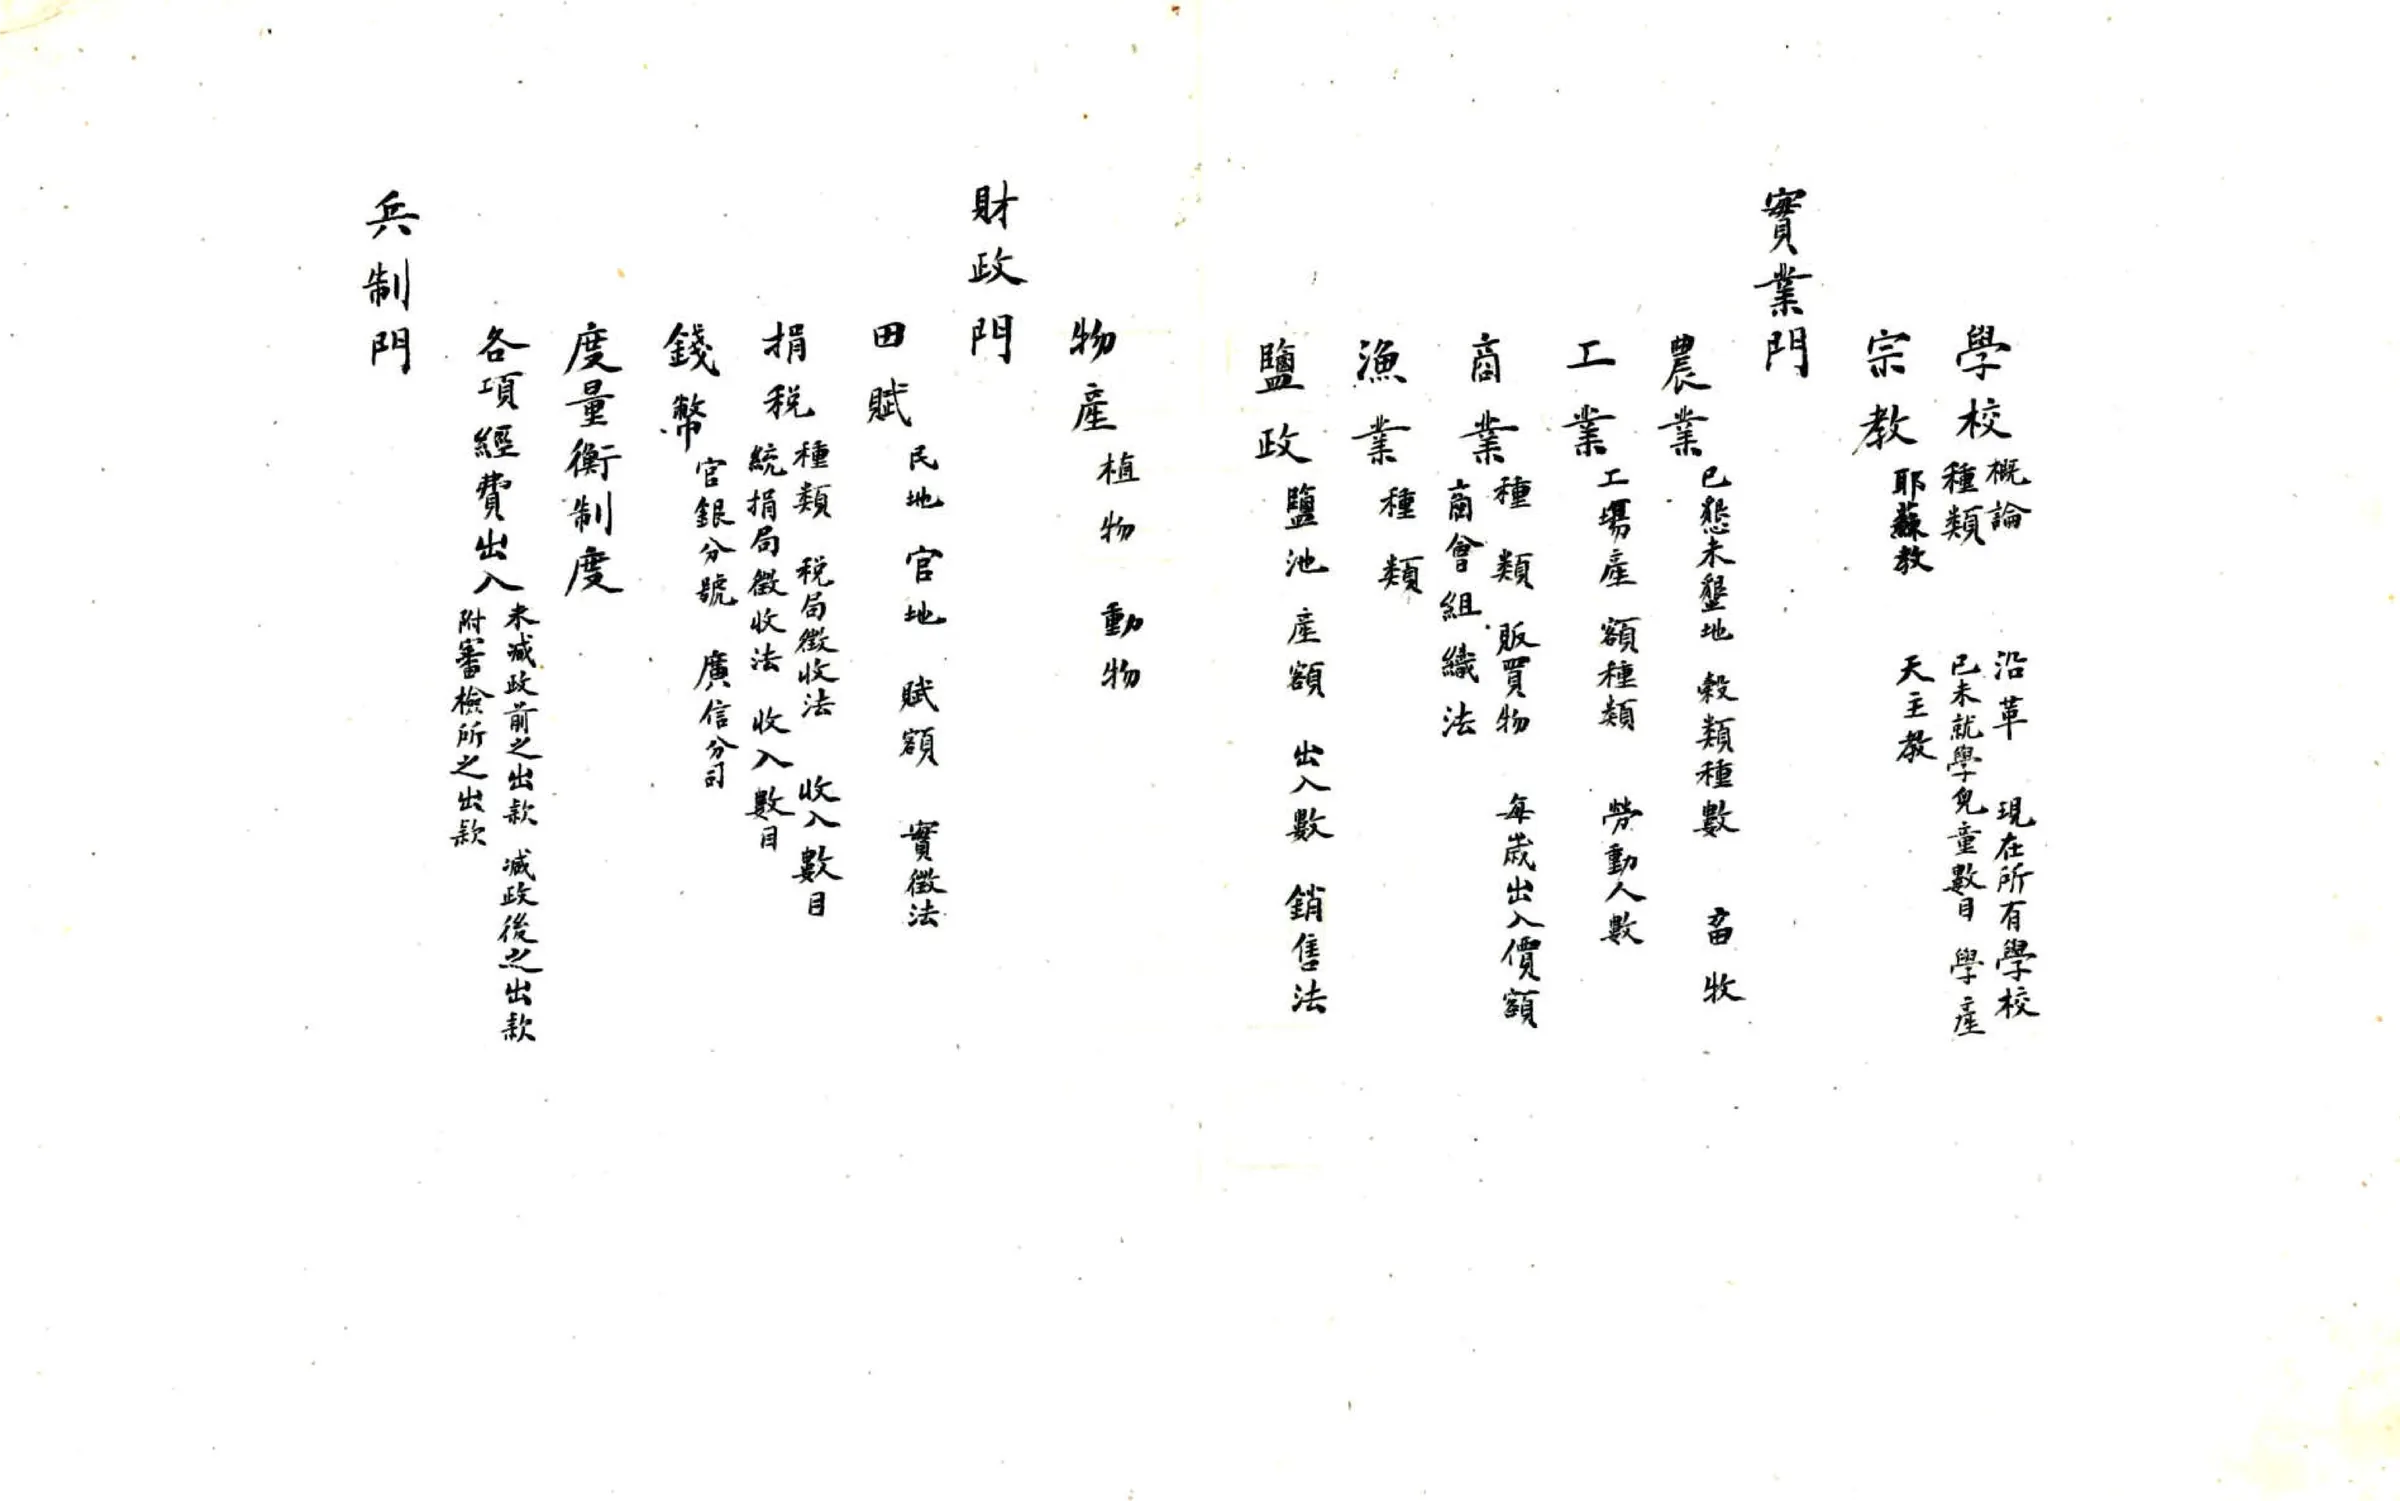 學校
概論 沿革 現在所有學校
種類 已未就學兒童數目 學產
宗教
耶蘇教 天主教
實業門
農業
已懇未墾地 穀類種數 畜牧
工業
工場產額種類 勞動人數
商業
種類 販買物 每歲出入價額
商會組織法
漁業
種類
鹽政
鹽池 產額 出入數 銷售法
物產
植物 動物
財政門
田賦
民地 官地 賦額 實徵法
捐税
種類 税局徵收法 收入數目
統捐局徵收法 收入數目
錢幣
官銀分號 廣信分司
度量衡制度
各項經費出入
未減政前之出款 減政後之出款
附審檢所之出款
兵制門